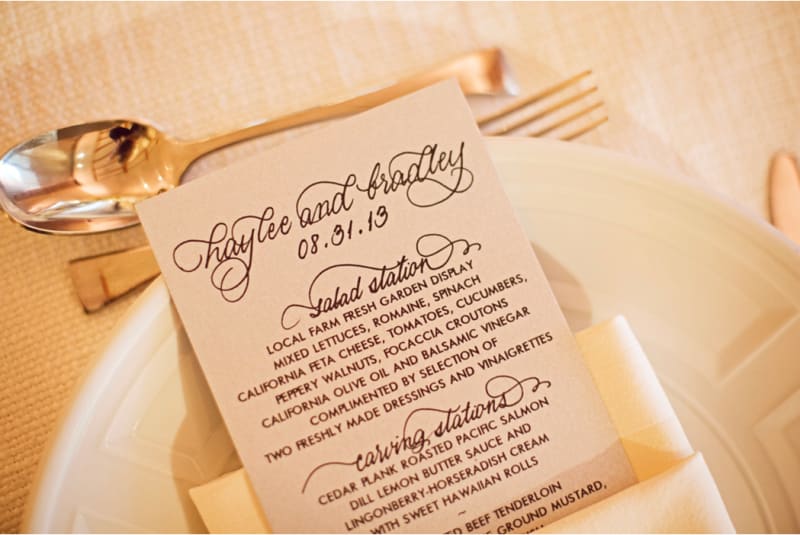 haylee and bradley
08.31.13
salad station
LOCAL FARM FRESH GARDEN DISPLAY
MIXED LETTUCES, ROMAINE, SPINACH
CALIFORNIA FETA CHEESE, TOMATOES, CUCUMBERS,
PEPPERY WALNUTS, FOCACCIA CROUTONS
CALIFORNIA OLIVE OIL AND BALSAMIC VINEGAR
COMPLIMENTED BY SELECTION OF
TWO FRESHLY MADE DRESSINGS AND VINAIGRETTES
carving stations
CEDAR PLANK ROASTED PACIFIC SALMON
DILL LEMON BUTTER SAUCE AND
LINGONBERRY-HORSERADISH CREAM
WITH SWEET HAWAIIAN ROLLS
BEEF TENDERLOIN
GROUND MUSTARD,